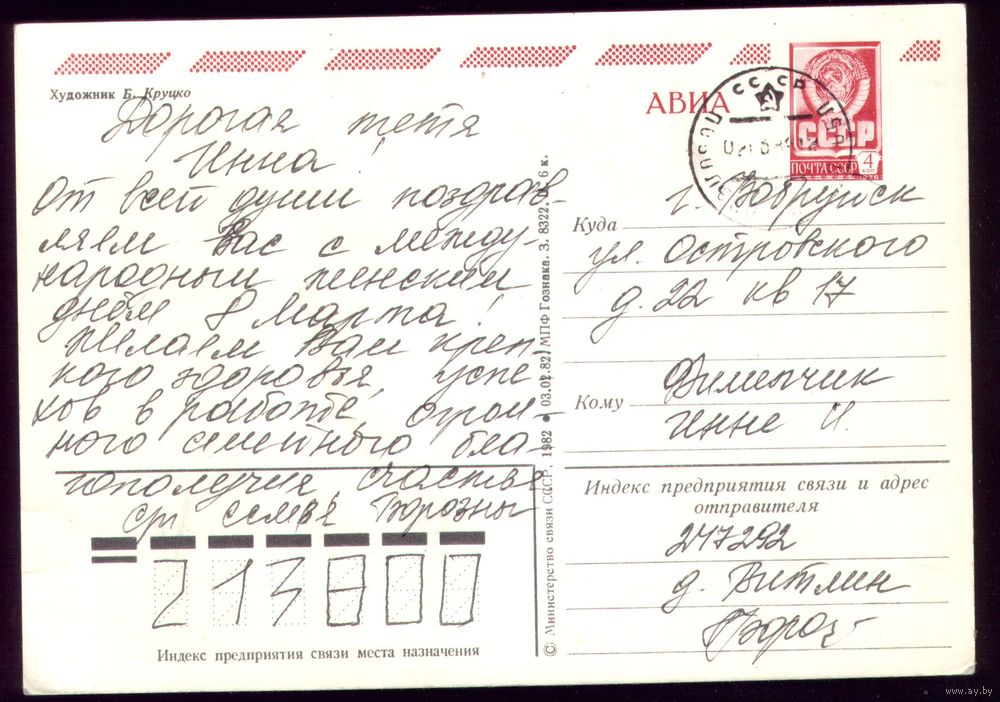 Художник Б. Круцко
Дорогая тетя
Инна!
От всей души поздрав-
ляем Вас с между-
народным женским
днём 8 марта!
Желаем Вам креп-
кого здоровья, успе-
хов в работе, огром-
ного семейного бла-
гополучия, счастья
семья Борозны
213800
Индекс предприятия связи места назначения
© Министерство связи СССР, 1982 ● 03.02.82. МПФ Гознака. З. 8322. 6 к.
АВИА
СССР
СССР
ПОЧТА СССР
4
коп
1976
г. Бобруйск
Куда
ул. Островского
д. 22 кв 17
Кому
Инне И.
Индекс предприятия связи и адрес
отправителя
247292
д. Витлин
www.ay.by